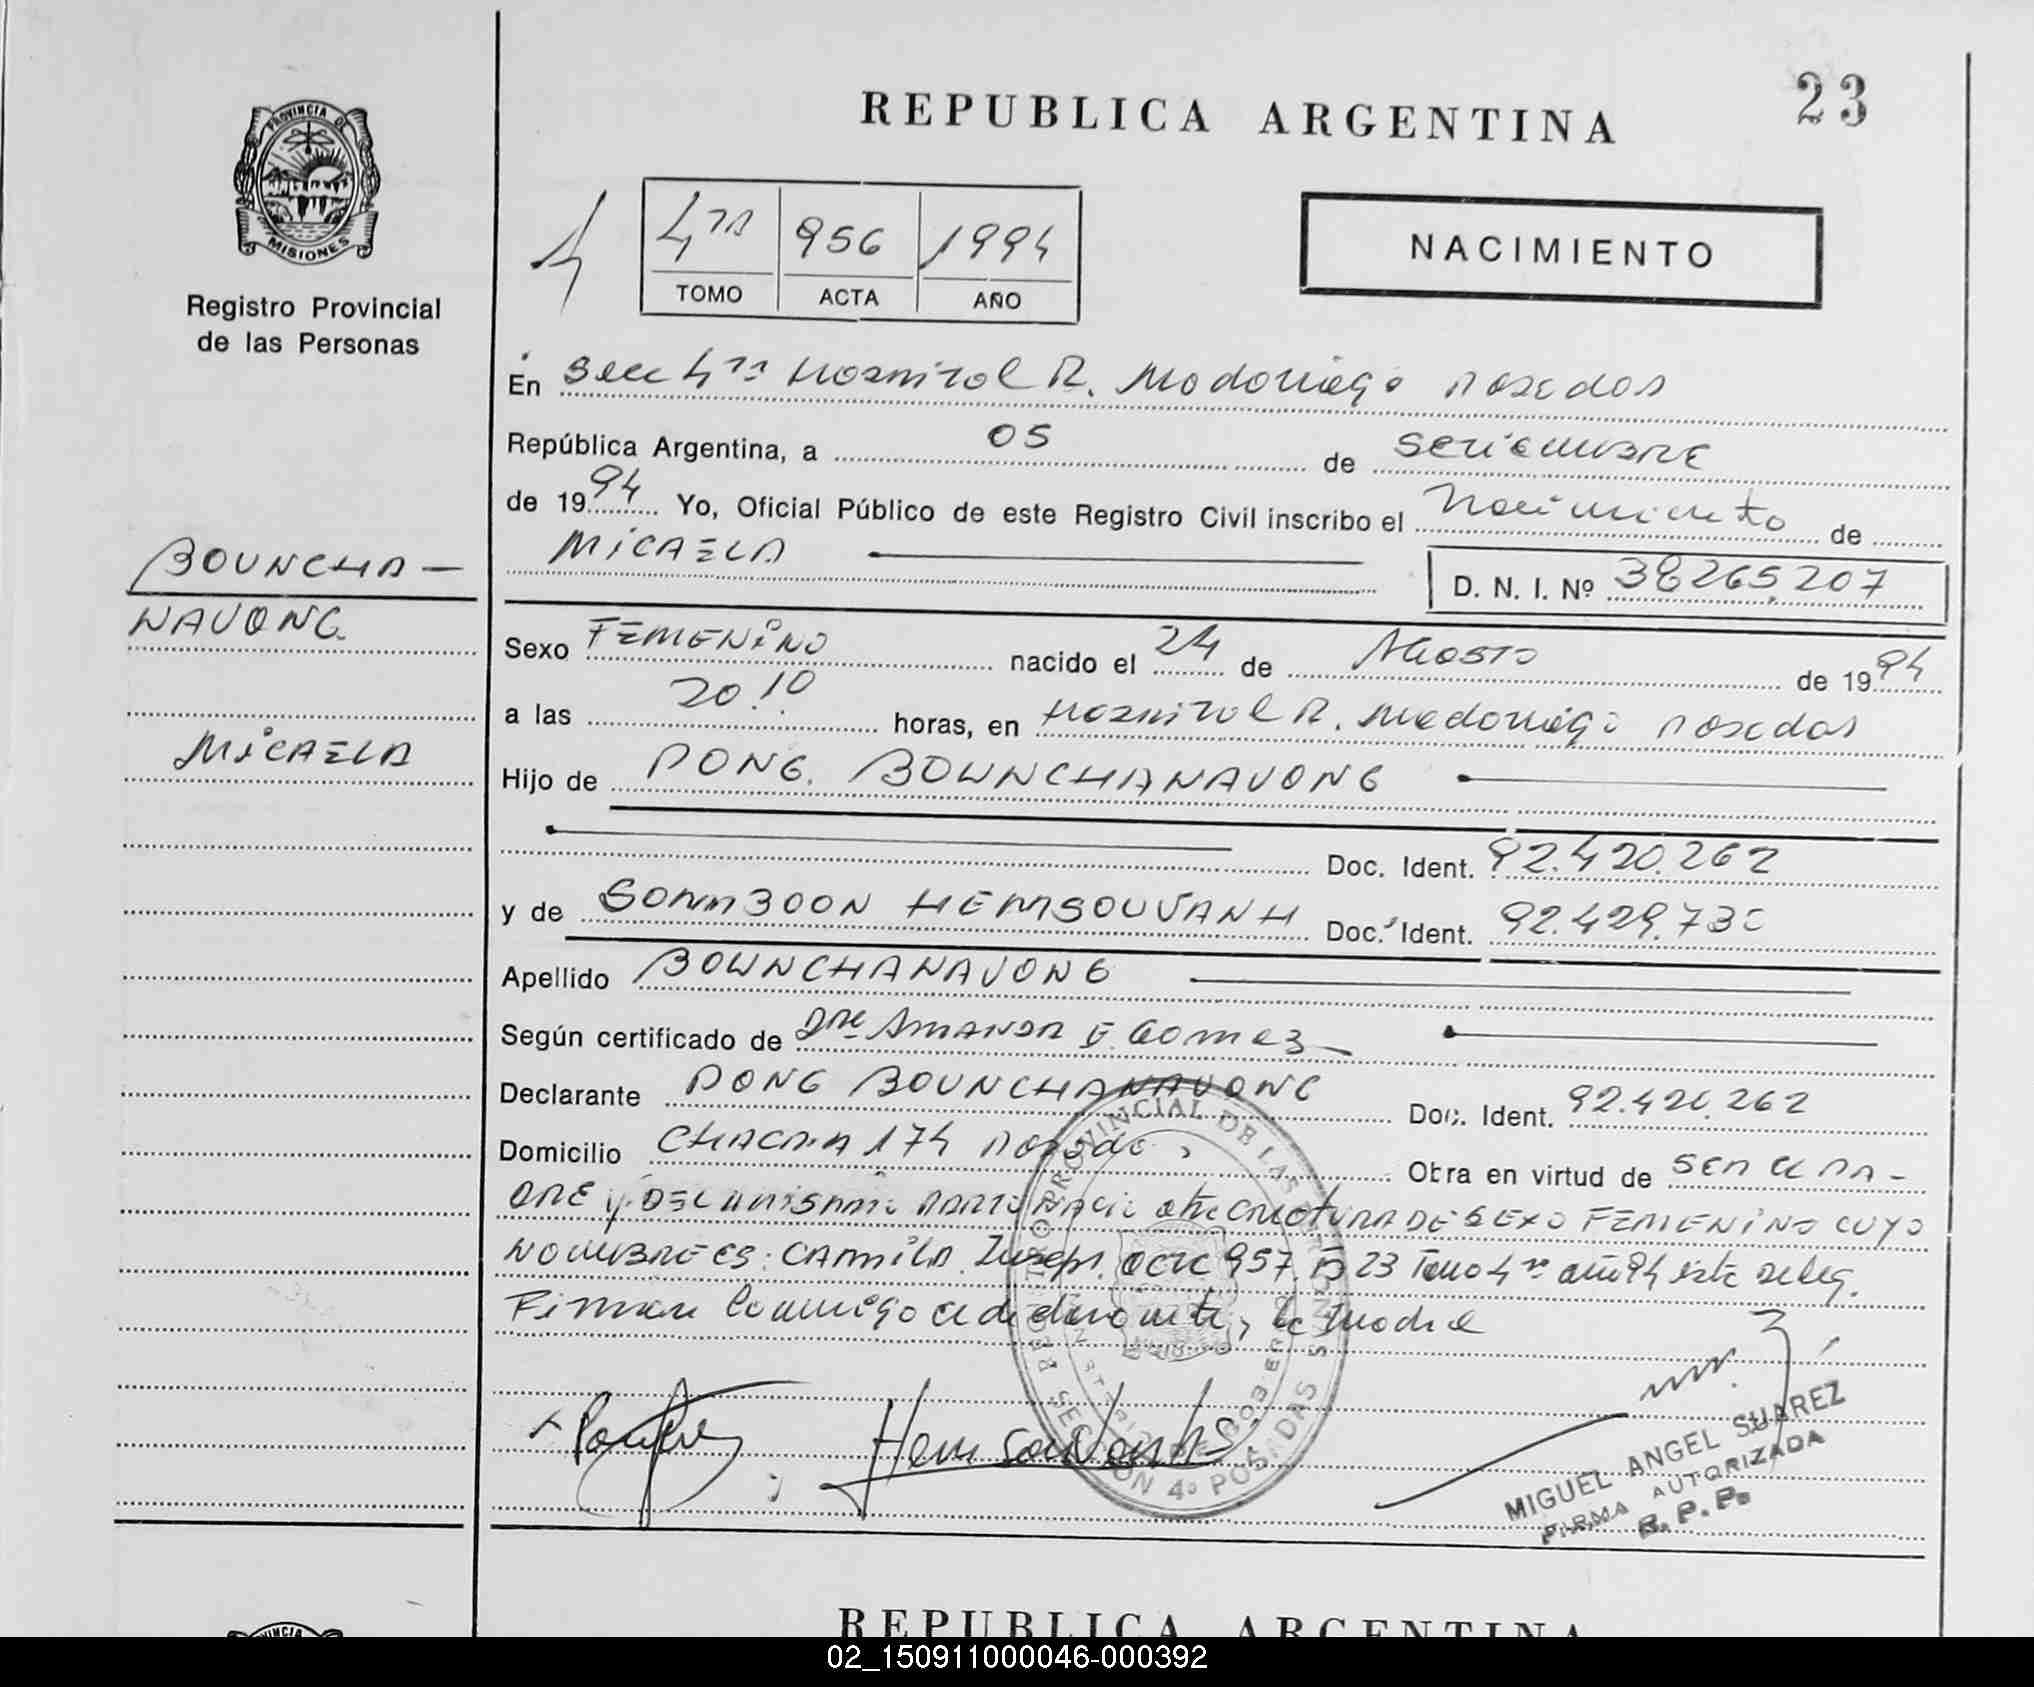 REPUBLICA ARGENTINA
23
PROVINCIA DE
MISIONES
Registro Provincial
de las Personas
4
4ta 956 1994
TOMO ACTA AÑO
NACIMIENTO
En Secc 4ta Hospital R. Madariaga Posadas
República Argentina, a 05 de Setiembre
de 1994 Yo, Oficial Público de este Registro Civil inscribo el Nacimiento de
MICAELA
D. N. I. Nº 38265.207
BOUNCHA-
NAVONG
MICAELA
Sexo FEMENINO nacido el 24 de Agosto de 1994
a las 20.10 horas, en Hospital R. Madariaga Posadas
Hijo de PONG. BOWNCHANAVONG
Doc. Ident. 92.420.262
y de SOMMBOON HEMSOUVANH Doc. Ident. 92.429.730
Apellido BOWNCHANAVONG
Según certificado de Dra AMANDA E. Gomez
Declarante PONG BOUNCHANAVONG Doc. Ident. 92.420.262
Domicilio CHACRA 174 Posadas Obra en virtud de SER EL PA-
DRE y DEL MISMO PARTO NACIO otra CRIATURA DE SEXO FEMENINO CUYO
NOMBRE ES: CAMILA. Inscp. acta 957. Fº 23 Tomo 4ta año 94 esta deleg.
Firman Conmigo el declarante, la madre
Hemsouvanhs
REGISTRO PROVINCIAL DE LAS PERSONAS
SECCION 4ª POSADAS
MIGUEL ANGEL SUAREZ
FIRMA AUTORIZADA
R. P. P.
REPUBLICA ARGENTINA
02_150911000046-000392